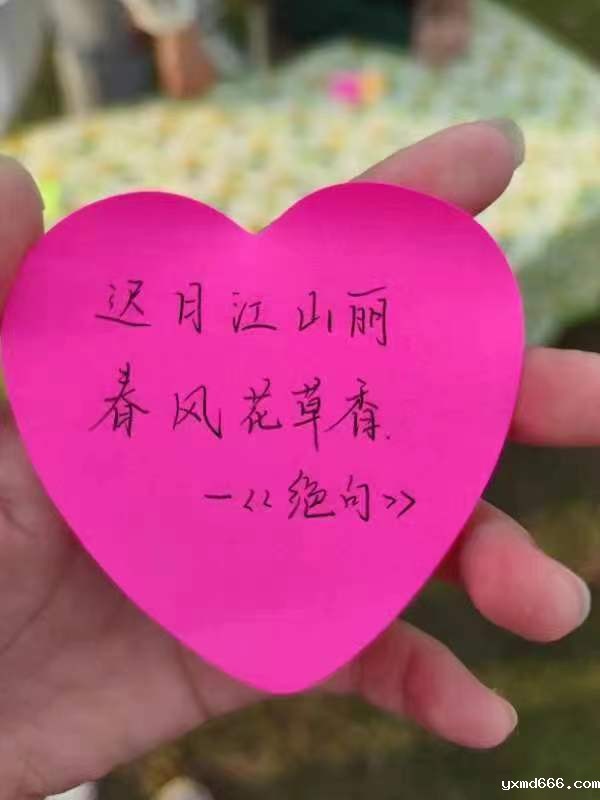 迟月江山丽
春风花草香.
—<<绝句>>
yxmd666.com